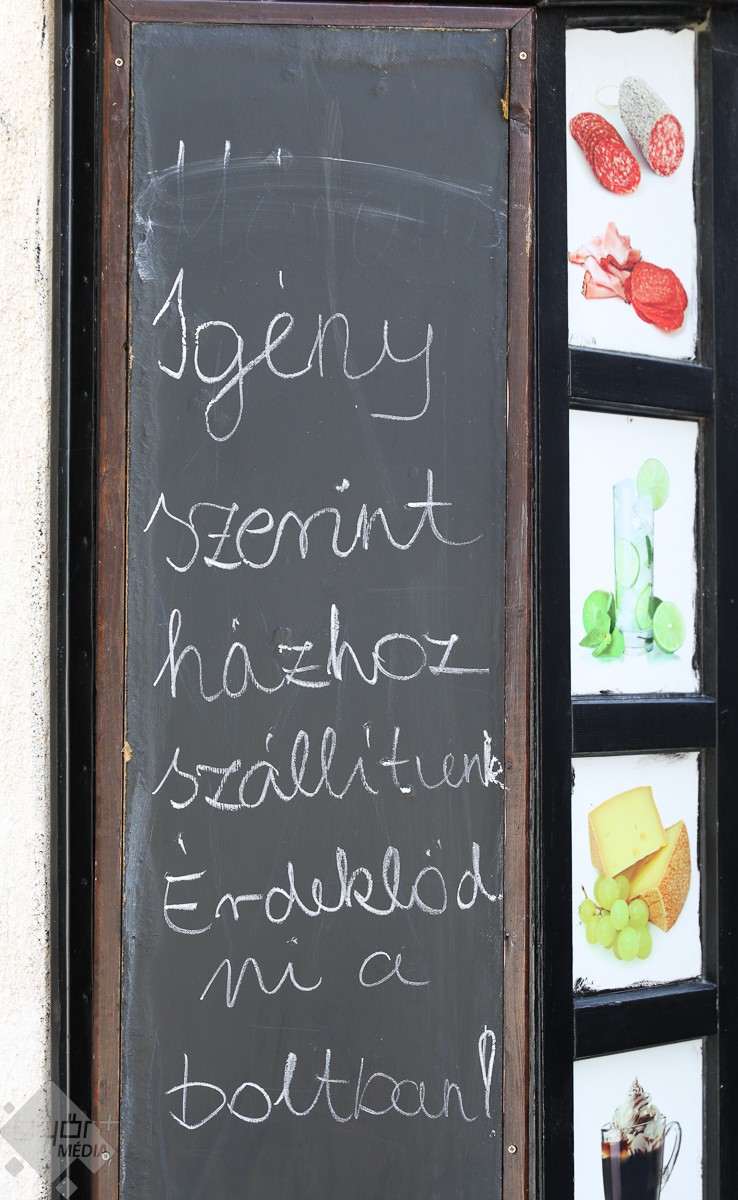 Igény
szerint
házhoz
szállítunk
Érdeklőd
ni a
boltban!
győr+
MÉDIA